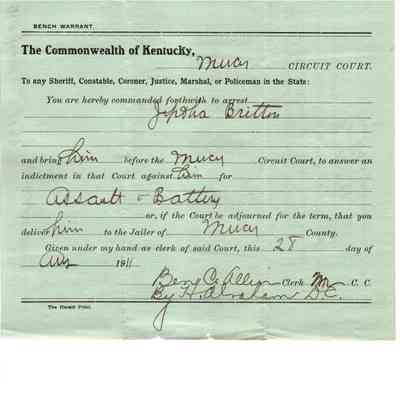 BENCH WARRANT.
The Commonwealth of Kentucky,
Mercer CIRCUIT COURT.
To any Sheriff, Constable, Coroner, Justice, Marshal, or Policeman in the State:
You are hereby commanded forthwith to arrest
Jeptha Britton
and bring him before the Mercer Circuit Court, to answer an
indictment in that Court against him for
Assault & Battery
or, if the Court be adjourned for the term, that you
deliver him to the Jailer of Mercer County.
Given under my hand as clerk of said Court, this 28 day of
Aug 1911
Ben C. Allin Clerk M. C. C.
By H. Abraham D.C.
The Herald Print.